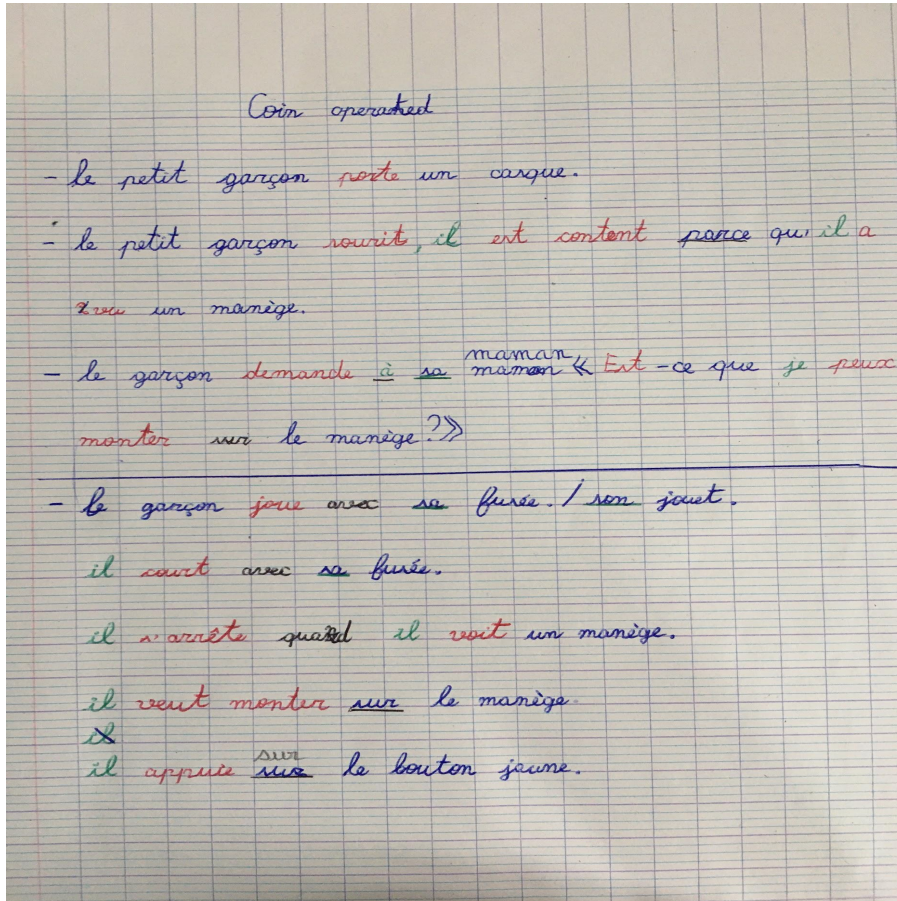 Coin operated
- le petit garçon porte un casque.
- le petit garçon sourit, il est content parce qu'il a
vu un manège.
- le garçon demande à sa maman maman « Est-ce que je peux
monter sur le manège ? »
- le garçon joue avec sa fusée. / son jouet.
il court avec sa fusée.
il s'arrête quand il voit un manège.
il veut monter sur le manège.
il
il appuie sur sur le bouton jaune.